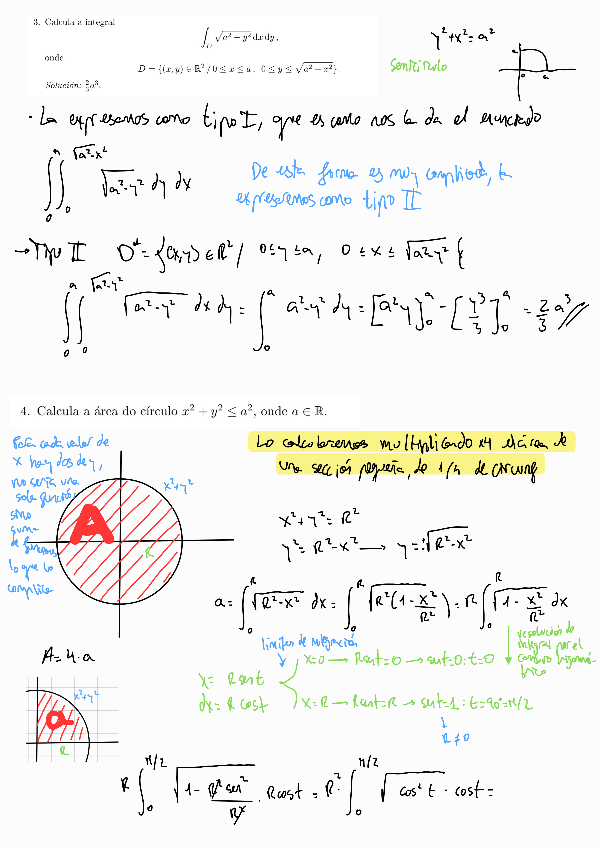 3. Calcula a integral
∫_D √(a² − y²) dx dy,
onde
D = {(x, y) ∈ ℝ² / 0 ≤ x ≤ a , 0 ≤ y ≤ √(a² − x²)} .
Solución: ⅔a³.
y²+x²=a²
Semicírculo
a
a
· La expresamos como tipo I, que es como nos la da el enunciado
∫₀^a ∫₀^√(a²-x²) √(a²-y²) dy dx
De esta forma es muy complicado, la
expresaremos como tipo II
→ Tipo II D* = {(x,y) ∈ ℝ² / 0≤y≤a, 0 ≤ x ≤ √(a²-y²) }
∫₀^a ∫₀^√(a²-y²) √(a²-y²) dx dy = ∫₀^a a²-y² dy = [a²y]₀^a - [y³/3]₀^a = 2/3 a³ //
4. Calcula a área do círculo x² + y² ≤ a², onde a ∈ ℝ.
Para cada valor de
x hay dos de y,
no sería una
sola función
sino
suma
de funciones
lo que lo
complica
x²+y²
A
R
Lo calcularemos multiplicando x4 el área de
una sección pequeña, de 1/4 de circunf
x²+y²=R²
y²=R²-x² → y=±√(R²-x²)
a = ∫₀^R √(R²-x²) dx = ∫₀^R √(R²(1-x²/R²)) = R ∫₀^R √(1-x²/R²) dx
A=4·a
x²+y²
a
R
límites de integración
resolución de
integral por el
cambio trigonomé
trico
x= R sent
dx= R cost
x=0 → Rsent=0 → sent=0: t=0
x=R → Rsent=R → sent=1: t=90º=π/2
↓
R≠0
R ∫₀^π/2 √(1- R² sen²/R²) · Rcost = R² · ∫₀^π/2 √(cos² t) · cost =